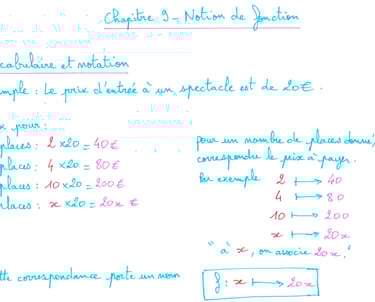 Chapitre 9 - Notion de fonction
cabulaire et notation
mple : Le prix d'entrée à un spectacle est de 20€.
x pour :
places : 2 ×20 = 40€
places : 4 ×20 = 80€
places : 10 ×20 = 200€
places : x ×20 = 20x €
pour un nombre de places donné,
correspondre le prix à payer.
Par exemple 2 ⟼ 40
4 ⟼ 80
10 ⟼ 200
x ⟼ 20x
" à x, on associe 20x."
tte correspondance porte un nom
f : x ⟼ 20x